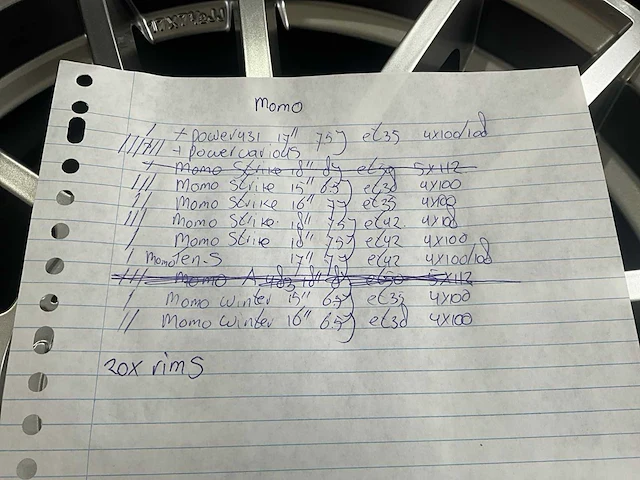 Momo
/ + power431 17" 7,5J et35 4x100/108
+ power various
+ Momo Strike 18" 8J 5x112
/// Momo Strike 15" 6.5J et38 4x100
/ Momo Strike 16" 7J et35 4x100
/// Momo Strike 18" 7.5J et42 4x108
/ Momo Strike 18" 7.5J et42 4x100
/ Momo Ten-S 17" 7J et42 4x100/108
Momo 18" 8J et50 5x112
/ Momo winter 15" 6.5J et35 4x100
// Momo winter 16" 6.5J et38 4x100
20x rims